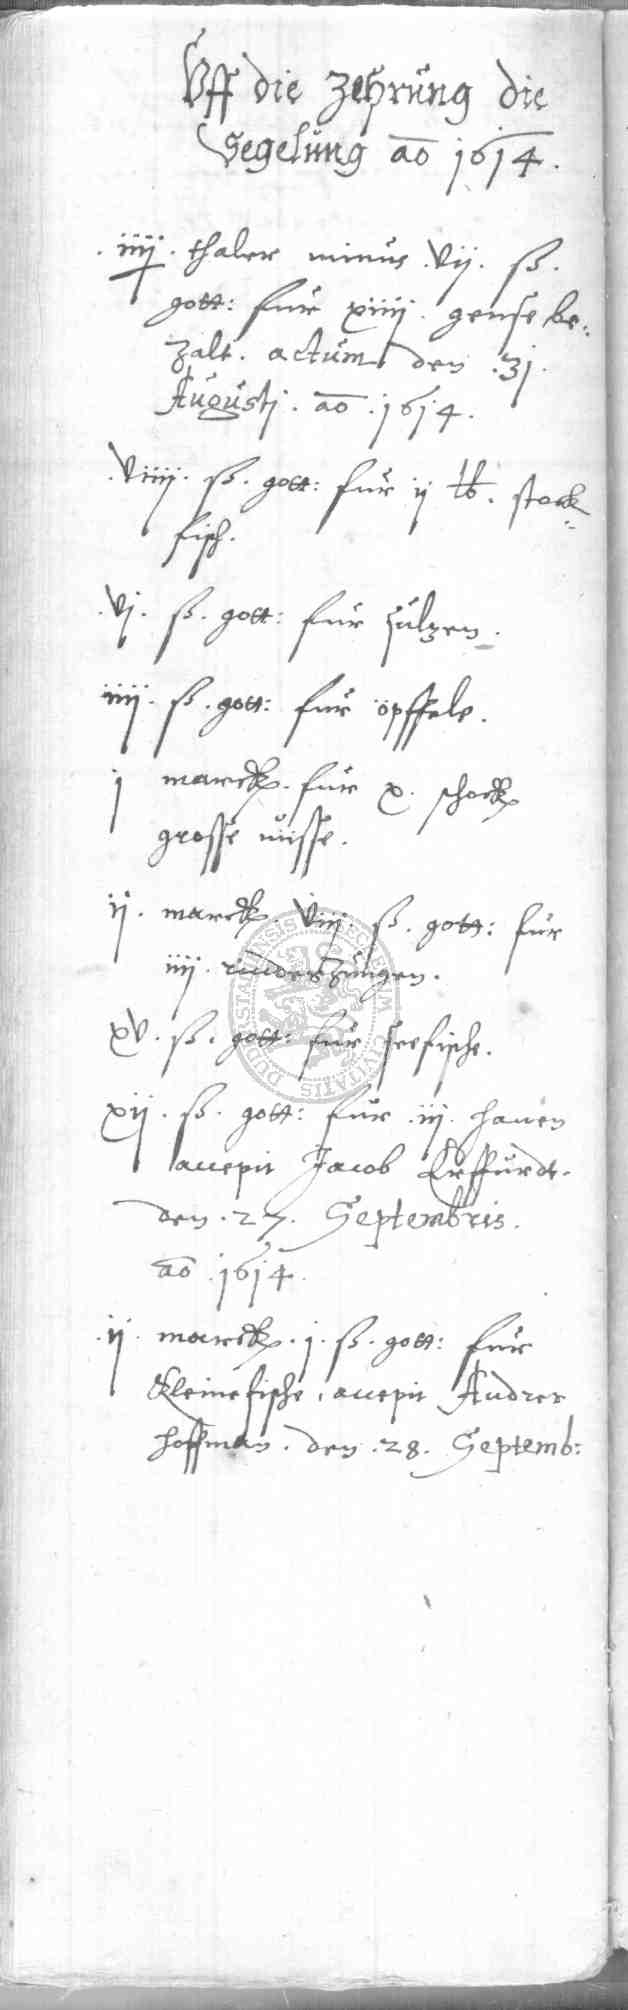 Vff die zehrung die
Segelung ao 1614.
.iiij. thaler minus .vij. ß.
gott: fur xiiij. gense be:
zalt. actum den .31.
Augusti. ao .1614.
.viiij. ß. gott: fur ij lb. stock
fisch.
.vj. ß. gott: fur sultzen.
iiij. ß. gott: fur öpffele.
j marck. fur x. schock
grosse nusse.
ij. marck. viij. ß. gott: fur
iiij. rinderzungen.
xv. ß. gott: fur seefische.
xij. ß. gott: fur .iij. hanen
accepit Jacob Erffurdt.
den .27. Septembris.
ao .1614.
.ij. marck. j. ß. gott: fur
Kleinefische, accepit Andres
Hoffman. den .28. Septemb:
DUDERSTADENSIS CIVITATIS